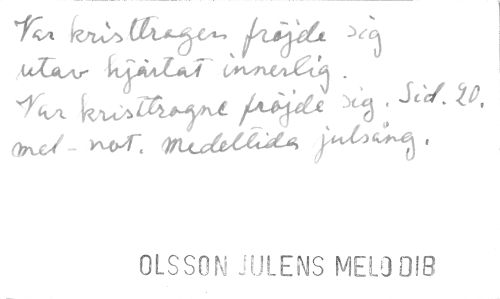 Var kristtrogen fröjde sig
utav hjärtat innerlig.
Var kristtrogne fröjde sig. Sid. 20.
mel-not. medeltida julsång.
OLSSON JULENS MELODIB